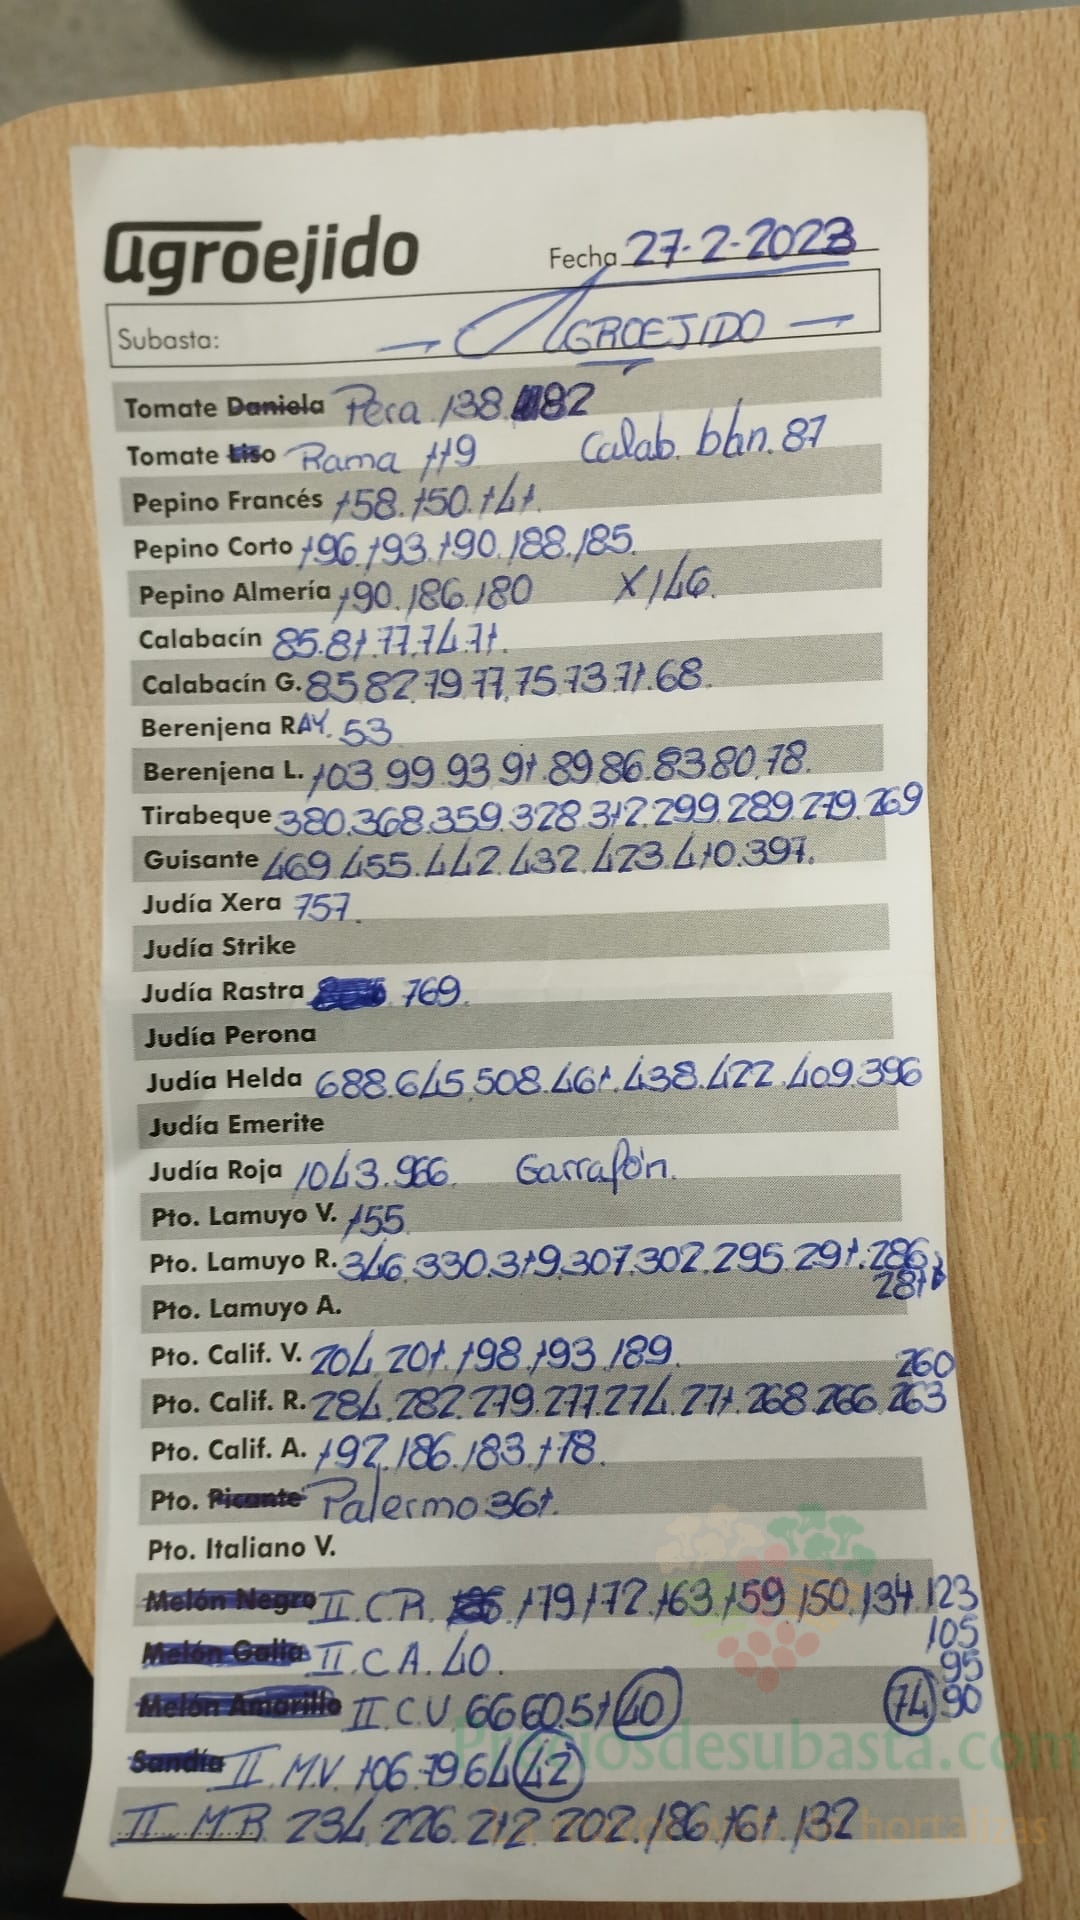 agroejido
Fecha 27-2-2023
Subasta: — AGROEJIDO —
Tomate Daniela Pera 138. 82
Tomate Liso Rama 119 Calab. blan. 87
Pepino Francés 158. 150. 141.
Pepino Corto 196. 193. 190. 188. 185.
Pepino Almería 190. 186. 180 X 146.
Calabacín 85. 81. 77. 74. 71.
Calabacín G. 85 82. 79. 77. 75. 73. 71. 68.
Berenjena RAY. 53
Berenjena L. 103. 99. 93. 91. 89 86. 83 80. 78.
Tirabeque 380. 368. 359. 328. 312. 299. 289. 279. 269
Guisante 469. 455. 442. 432. 423. 410. 397.
Judía Xera 757.
Judía Strike
Judía Rastra 769.
Judía Perona
Judía Helda 688. 645. 508. 461. 438. 422. 409. 396
Judía Emerite
Judía Roja 1043. 966. Garrafón.
Pto. Lamuyo V. 155.
Pto. Lamuyo R. 346. 330. 319. 307. 302. 295. 291. 286
281
Pto. Lamuyo A.
Pto. Calif. V. 204. 201. 198. 193. 189.
260
Pto. Calif. R. 284. 282. 279. 277. 274. 271. 268. 266. 263
Pto. Calif. A. 192. 186. 183. 178.
Pto. Picante Palermo 361.
Pto. Italiano V.
Melón Negro II. C. R. 179. 172. 163. 159. 150. 134. 123
105
Melón Galia II. C A. 40.
95
Melón Amarillo II. C. V 66 60. 51 40 74 90
Preciosdesubasta.com
Sandía II M.V. 106. 79. 64 42
II. M. R. 234. 226. 212. 202. 186. 161. 132
hortalizas